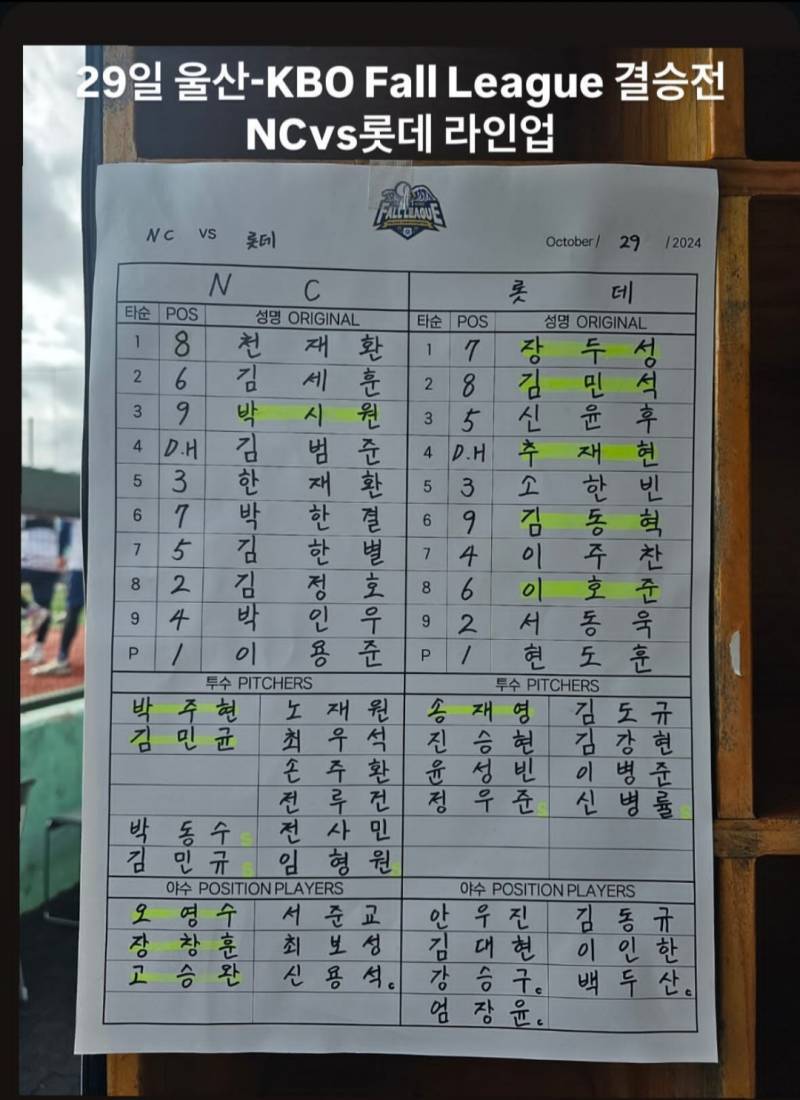 29일 울산-KBO Fall League 결승전
NCvs롯데 라인업
FALL LEAGUE
NC VS 롯데
October / 29 / 2024
N C 롯 데
타순 POS 성명 ORIGINAL 타순 POS 성명 ORIGINAL
1 8 천 재 환 1 7 장 두 성
2 6 김 세 훈 2 8 김 민 석
3 9 박 시 원 3 5 신 윤 후
4 D.H 김 범 준 4 D.H 추 재 현
5 3 한 재 환 5 3 소 한 빈
6 7 박 한 결 6 9 김 동 혁
7 5 김 한 별 7 4 이 주 찬
8 2 김 정 호 8 6 이 호 준
9 4 박 인 우 9 2 서 동 욱
P 1 이 용 준 P 1 현 도 훈
투수 PITCHERS 투수 PITCHERS
박 주 현 노 재 원 송 재 영 김 도 규
김 민 균 최 우 석 진 승 현 김 강 현
손 주 환 윤 성 빈 이 병 준
전 루 건 정 우 준 S 신 병 률 S
박 동 수 S 전 사 민
김 민 규 S 임 형 원 S
야수 POSITION PLAYERS 야수 POSITION PLAYERS
오 영 수 서 준 교 안 우 진 김 동 규
장 창 훈 최 보 성 김 대 현 이 인 한
고 승 완 신 용 석 c 강 승 구 c 백 두 산 c
엄 장 윤 c